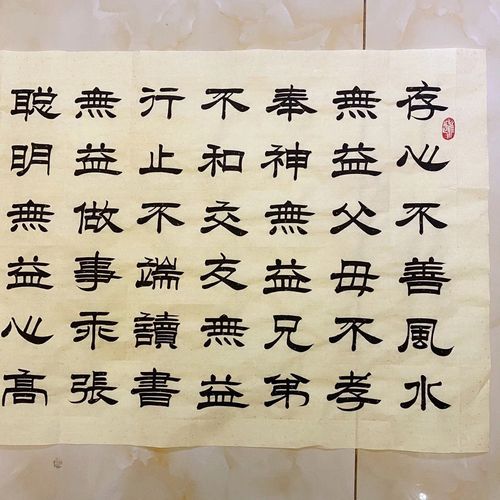 存心不善風水
無益父母不孝
奉神無益兄弟
不和交友無益
行止不端讀書
無益做事乖張
聡明無益心高